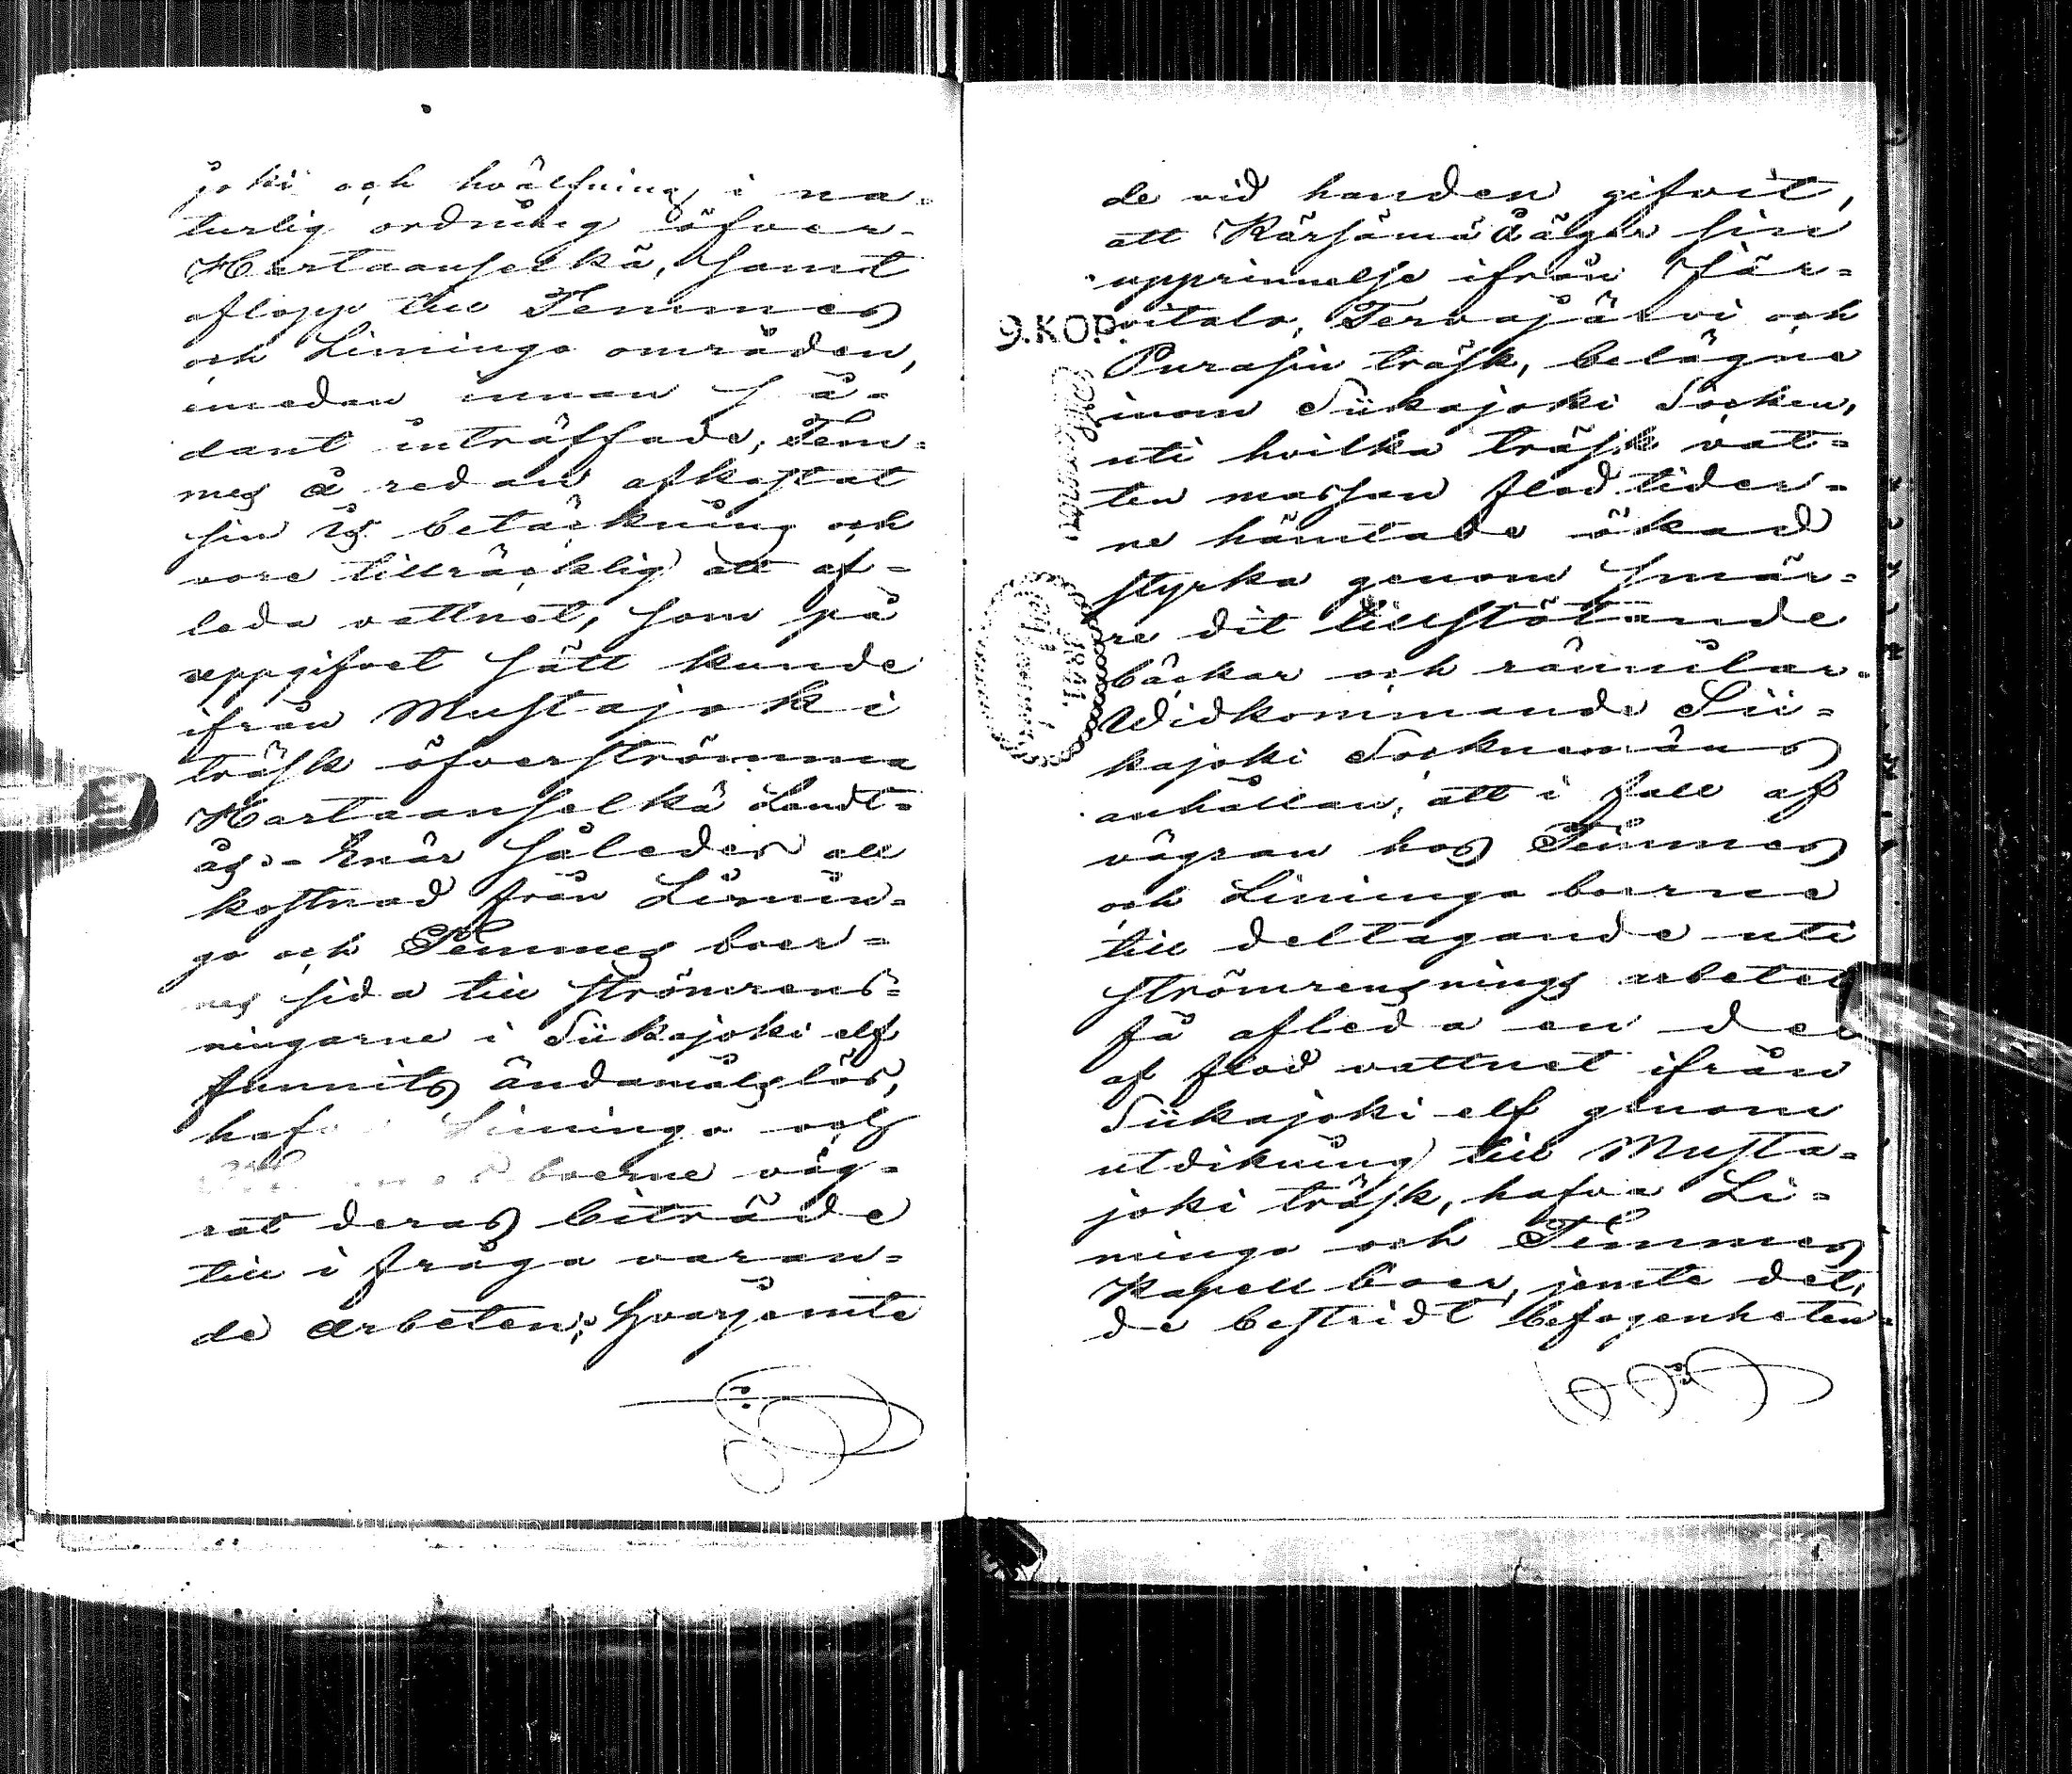 joki och hvälfning i na=
turlig ordning öfver
Hartaanselkä, samt
aflopp till Temmes
och Limingo områden,
emedan innan så=
dant inträffade, Tem=
mes å redan afkastat
sin is betäckning och
vore tillräcklig att af=
leda vattnet, som på
uppgifvet sätt kunde
ifrån Mustajoki
träsk öfverströmma
Hartaanselkä Landt=
ås:- Enär således all
kostnad från Limin=
go och Temmes boer=
nes sida till strömrens=
ningarne i Siikajoki elf
funnits ändamålslös,
hafva Limingo och
boerne väg=
rat deras biträde
till i fråga varan=
de arbeten; hvarjemte
de vid handen gifvit,
att Kärsämä å äger sin
upprinnelse ifrån Jär=
vitalo, Tervajärvi och
Purasin träsk, belägne
inom Siikajoki Socken,
uti hvilka träsk vat=
ten massan flod tider=
ne hämtade ökad
styrka genom smär=
re dit tillstötande
bäckar och rännilar.
Widkommande Sii=
kajoki Socknemäns
anhållan, att i fall af
vägran hos Temmes
och Limingo boerne
till deltagande uti
strömrensnings arbetet
få afleda en del
af flod vattnet ifrån
Siikajoki elf genom
utdikning till Musta=
joki träsk, hafva Li=
mingo och Temmes
Kapell boer, jemte det,
de bestridt befogenheten
9.KOP.
1841.